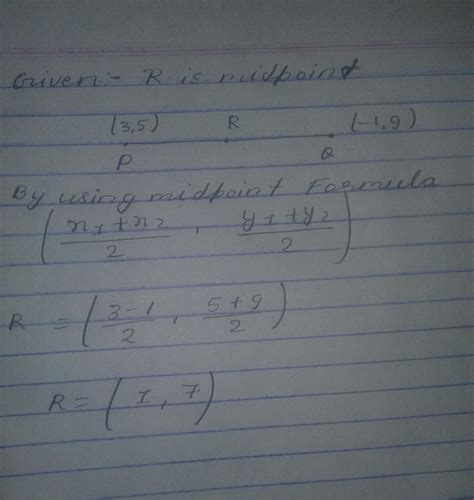 Given:- R is midpoint
(3,5) R (-1,9)
P Q
By using midpoint Formula
(x1+x2/2 , y1+y2/2)
R = (3-1/2 , 5+9/2)
R = (1, 7)